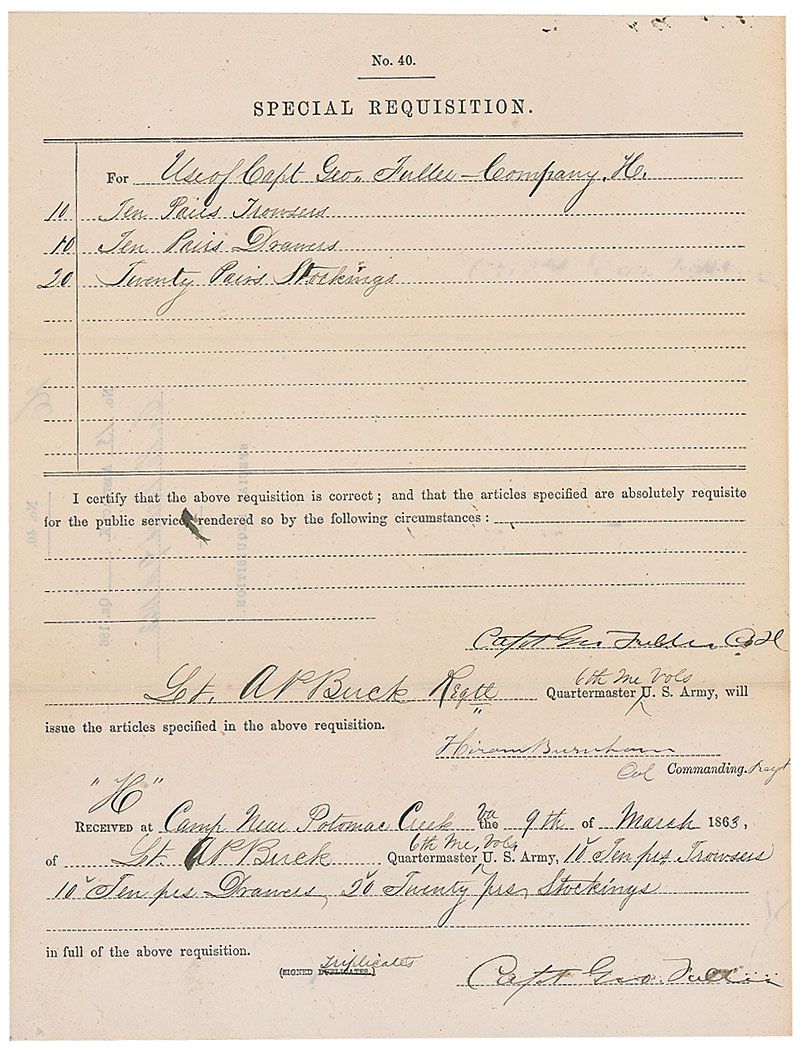 No. 40.
SPECIAL REQUISITION.
For Use of Capt Geo. Fuller - Company. H.
10 Ten Pairs Trowsers
10 Ten Pairs Drawers
20 Twenty Pairs Stockings
I certify that the above requisition is correct; and that the articles specified are absolutely requisite
for the public service, rendered so by the following circumstances:
Capt Geo Fuller Co H
6th Me Vols
Lt. A P Buck Regtl Quartermaster U. S. Army, will
issue the articles specified in the above requisition.
Hiram Burnham
Col Commanding. Regt
"H"
RECEIVED at Camp Near Potomac Creek Va the 9th of March 1863,
6th Me, Vols,
of Lt. A P Buck Quartermaster U. S. Army, 10 Ten prs Trowsers
10 Ten prs Drawers, 20 Twenty prs, Stockings
in full of the above requisition.
Triplicates
(SIGNED DUPLICATES.)
Capt Geo. Fuller